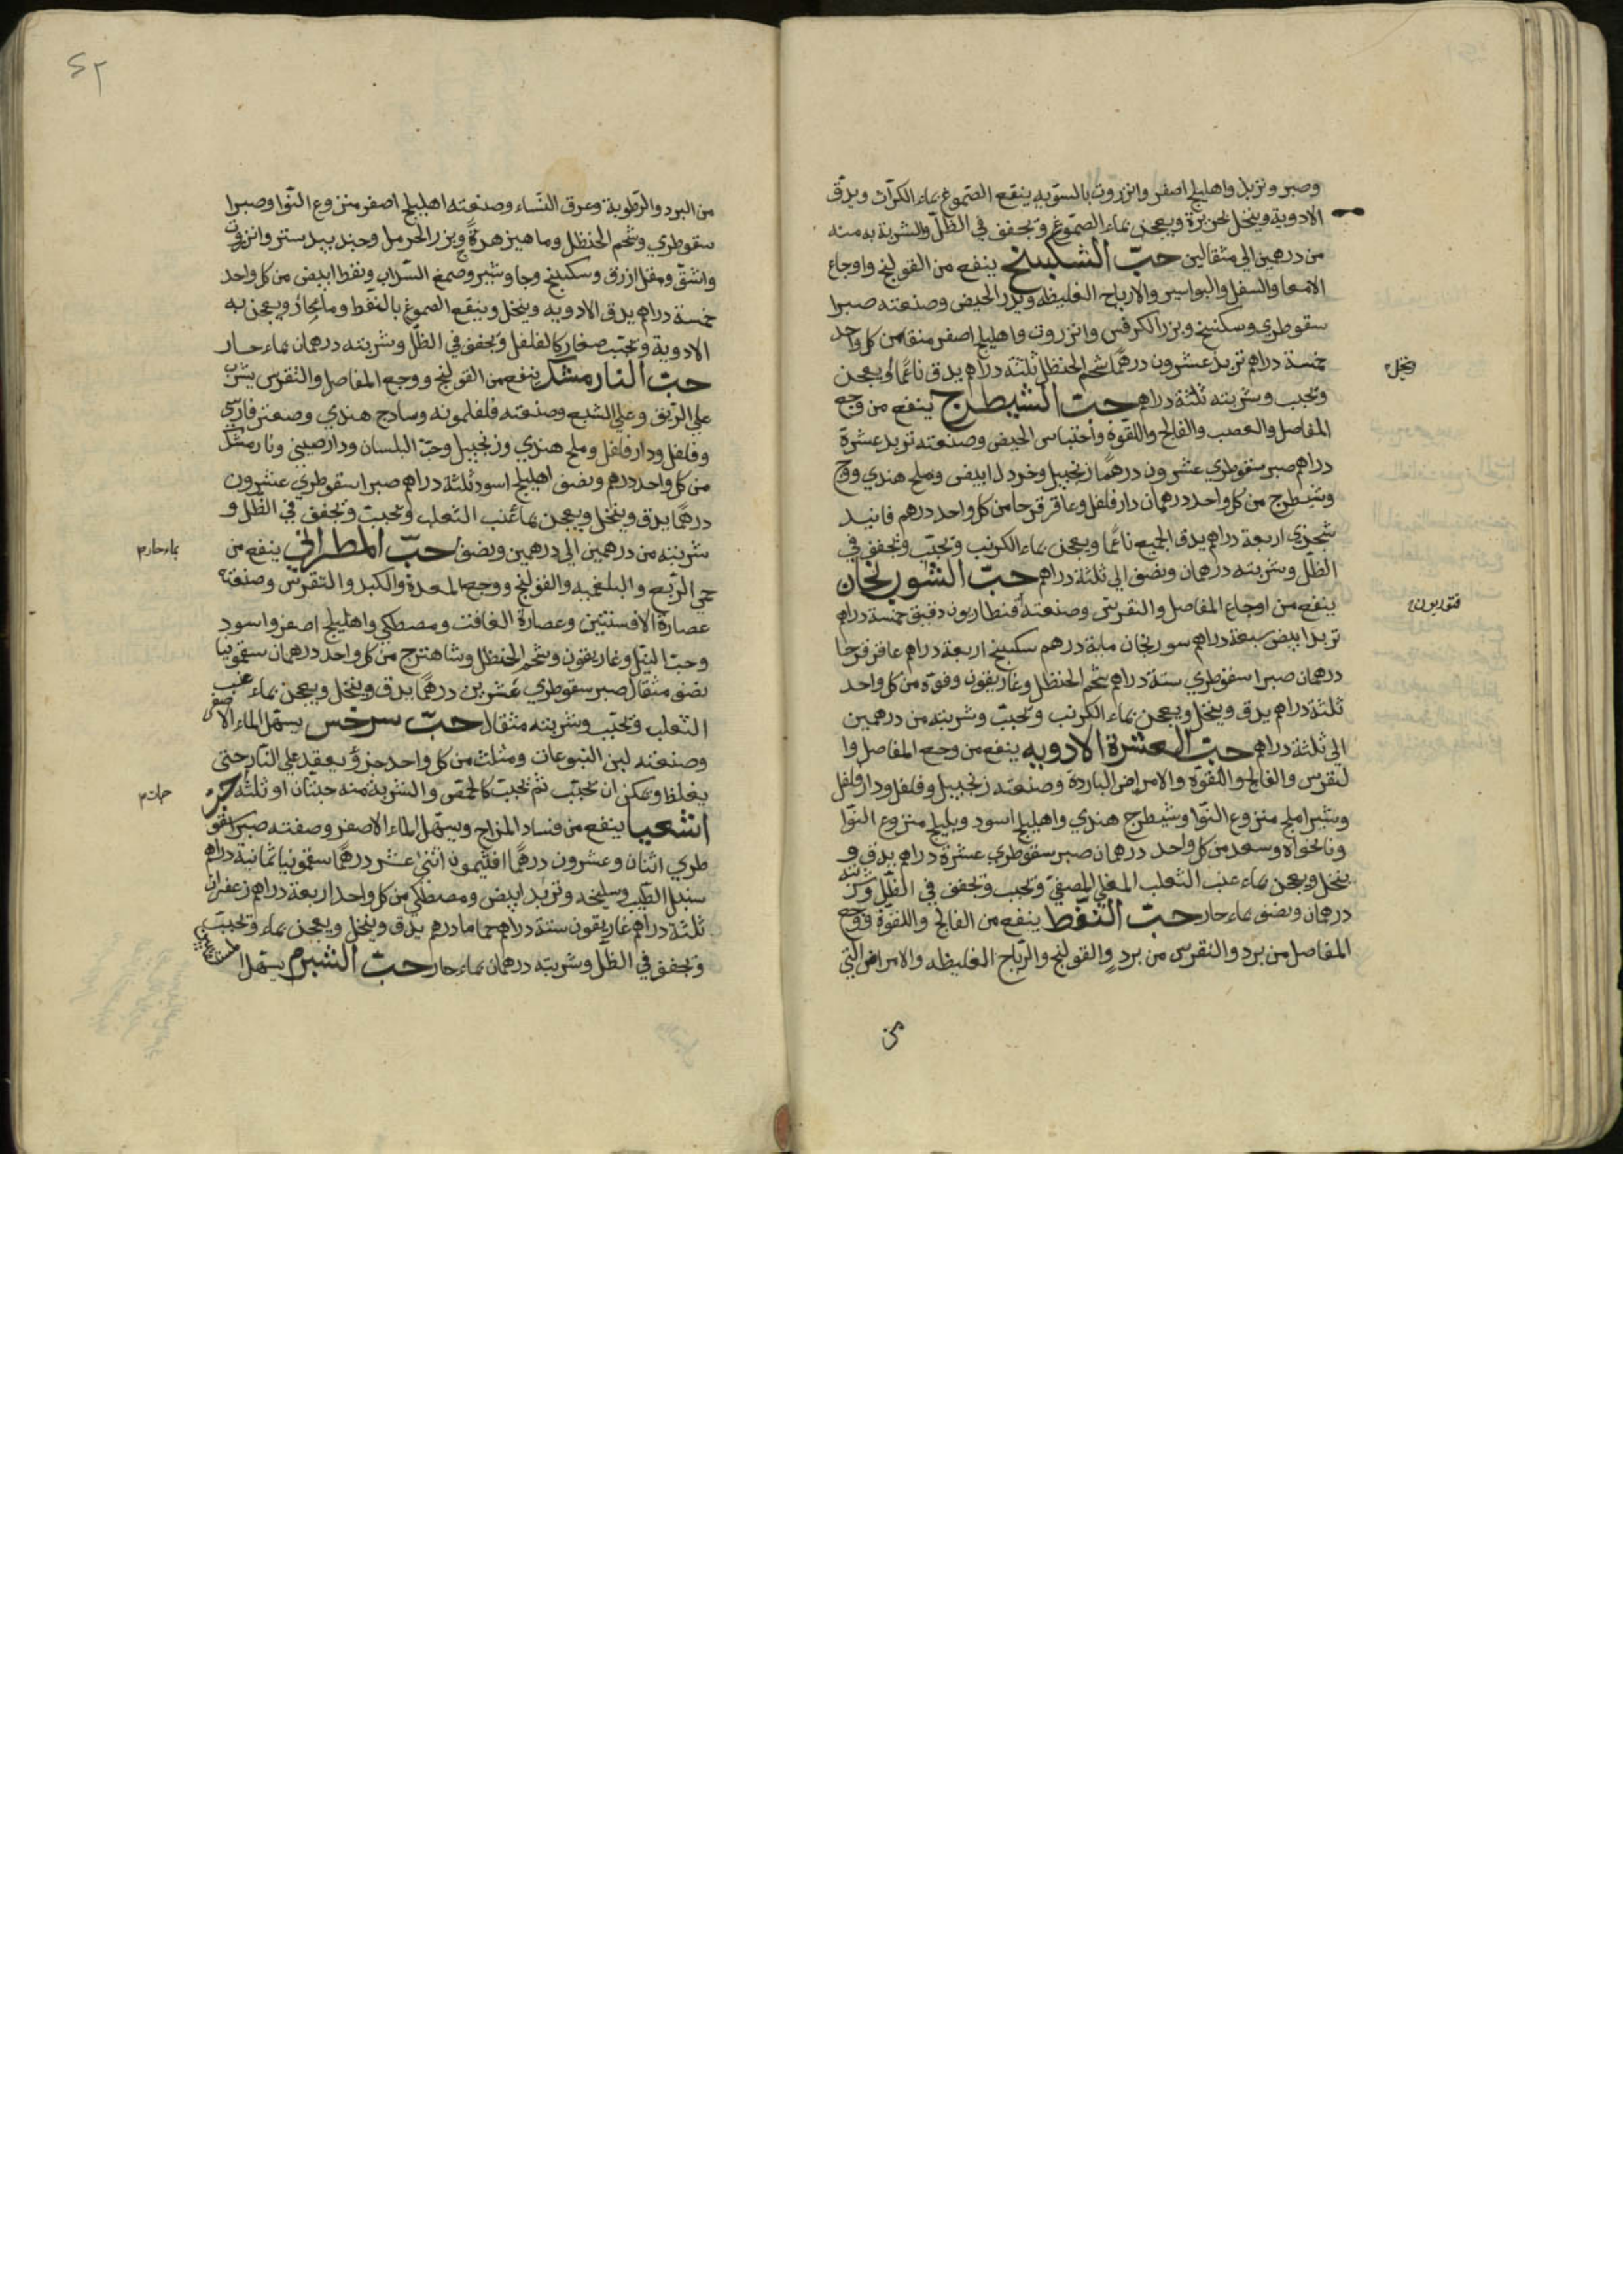 وصبر وتربد واهليلج اصفر وانزروت بالسويه ينقع الصموغ بماء الكراث ويدق
الادوية وينخل بحريرة ويعجن بماء الصموغ وتجفف في الظل والشربة به منه
من درهمين الى مثقالين حب السكبينج ينفع من القولنج واوجاع
الامعا والسفل والبواسير والارياح الغليظه ويدر الحيض وصنعته صبرا
سقوطري وسكبينج وبزر الكرفس وانزروت واهليلج اصفر منقا من كل واحد
خمسة دراهم تربد عشرون درهما شحم الحنظل ثلثة دراهم يدق ناعما ويعجن
وينخل
وتحبب وشربته ثلثة دراهم حب الشيطرج ينفع من وجع
المفاصل والعصب والفالج واللقوة واحتباس الحيض وصنعته تربد عشرة
دراهم صبر سقوطري عشرون درهما زنجبيل وخردل ابيض وملح هندي ووج
وشيطرج من كل واحد درهمان دارفلفل وعاقرقرحا من كل واحد درهم فانيد
شجزي اربعة دراهم يدق الجميع ناعما ويعجن بماء الكرنب وتحبب وتجفف في
الظل وشربته درهمان ونصف الى ثلثة دراهم حب السورنجان
ينفع من اوجاع المفاصل والنقرس وصنعته قنطاريون دقيق خمسة دراهم
تربد ابيض سبعة دراهم سورنجان ماية درهم سكبينج اربعة دراهم عاقرقرحا
درهمان صبرا سقوطري ستة دراهم شحم الحنظل وغاريقون وفوة من كل واحد
ثلثة دراهم يدق وينخل ويعجن بماء الكرنب وتحبب وشربته من درهمين
الى ثلثة دراهم حب العشرة الادويه ينفع من وجع المفاصل وا
لنقرس والفالج واللقوة والامراض الباردة وصنعته زنجبيل وفلفل ودارفلفل
وشير املج منزوع النوا وشيطرج هندي واهليلج اسود وبليلج منزوع النوا
ونانخواه وسعد من كل واحد درهمان صبر سقوطري عشرة دراهم يدق و
ينخل ويعجن بماء عنب الثعلب المغلي المصفى وتحبب وتجفف في الظل وشربته
درهمان ونصف بماء حار حب النفط ينفع من الفالج واللقوة ووجع
المفاصل من برد والنقرس من برد والقولنج والرياح الغليظه والامراض التي
من
من البرد والرطوبة وعرق النساء وصنعته اهليلج اصفر منزوع النوا وصبرا
سقوطري وشحم الحنظل وماهيزهرة وبزر الحرمل وجندبيدستر وانزروت
واشق ومقل ازرق وسكبينج وجاوشير وصمغ السداب ونفط ابيض من كل واحد
خمسة دراهم يدق الادويه وينخل وينقع الصموغ بالنفط وماء حار ويعجن به
الادوية وتحبب صغار كالفلفل وتجفف في الظل وشربته درهمان بماء حار
حب النارمشك ينفع من القولنج ووجع المفاصل والنقرس يشرب
على الريق وعلى الشبع وصنعته فلفلمونه وسادج هندي وصعتر فارسي
وفلفل ودارفلفل وملح هندي وزنجبيل وحب البلسان ودارصيني ونارمشك
من كل واحد درهم ونصف اهليلج اسود ثلثة دراهم صبرا سقوطري عشرون
درهما يدق وينخل ويعجن بماء عنب الثعلب وتحبب وتجفف في الظل و
شربته من درهمين الى درهمين ونصف حب المطراني ينفع من
بماء حار م
حمى الربع والبلغميه والقولنج ووجع المعدة والكبد والنقرس وصنعته
عصارة الافسنتين وعصارة الغافت ومصطكي واهليلج اصفر واسود
وحب النيل وغاريقون وشحم الحنظل وشاهترج من كل واحد درهمان سقمونيا
نصف مثقال صبر سقوطري عشرين درهما يدق وينخل ويعجن بماء عنب
الثعلب وتحبب وشربته مثقال حب سرخس يسهل الماء الاصفر
وصنعته لبن اليتوعات ومثلث من كل واحد جزؤ يعقد على النار حتى
يغلظ ويمكن ان يحبب ثم تحبب كالحمص والشربة منه حبتان او ثلثة
اشعيا ينفع من فساد المزاج ويسهل الماء الاصفر وصفته صبر سقو
طري اثنان وعشرون درهما افثيمون اثنى عشر درهما سقمونيا ثمانية دراهم
سنبل الطيب وسليخه وتربد ابيض ومصطكي من كل واحد اربعة دراهم زعفران
ثلثة دراهم غاريقون ستة دراهم حماما درهم يدق وينخل ويعجن بماء وتحبب
وتجفف في الظل وشربته درهمان بماء حار حب الشبرم يسهل